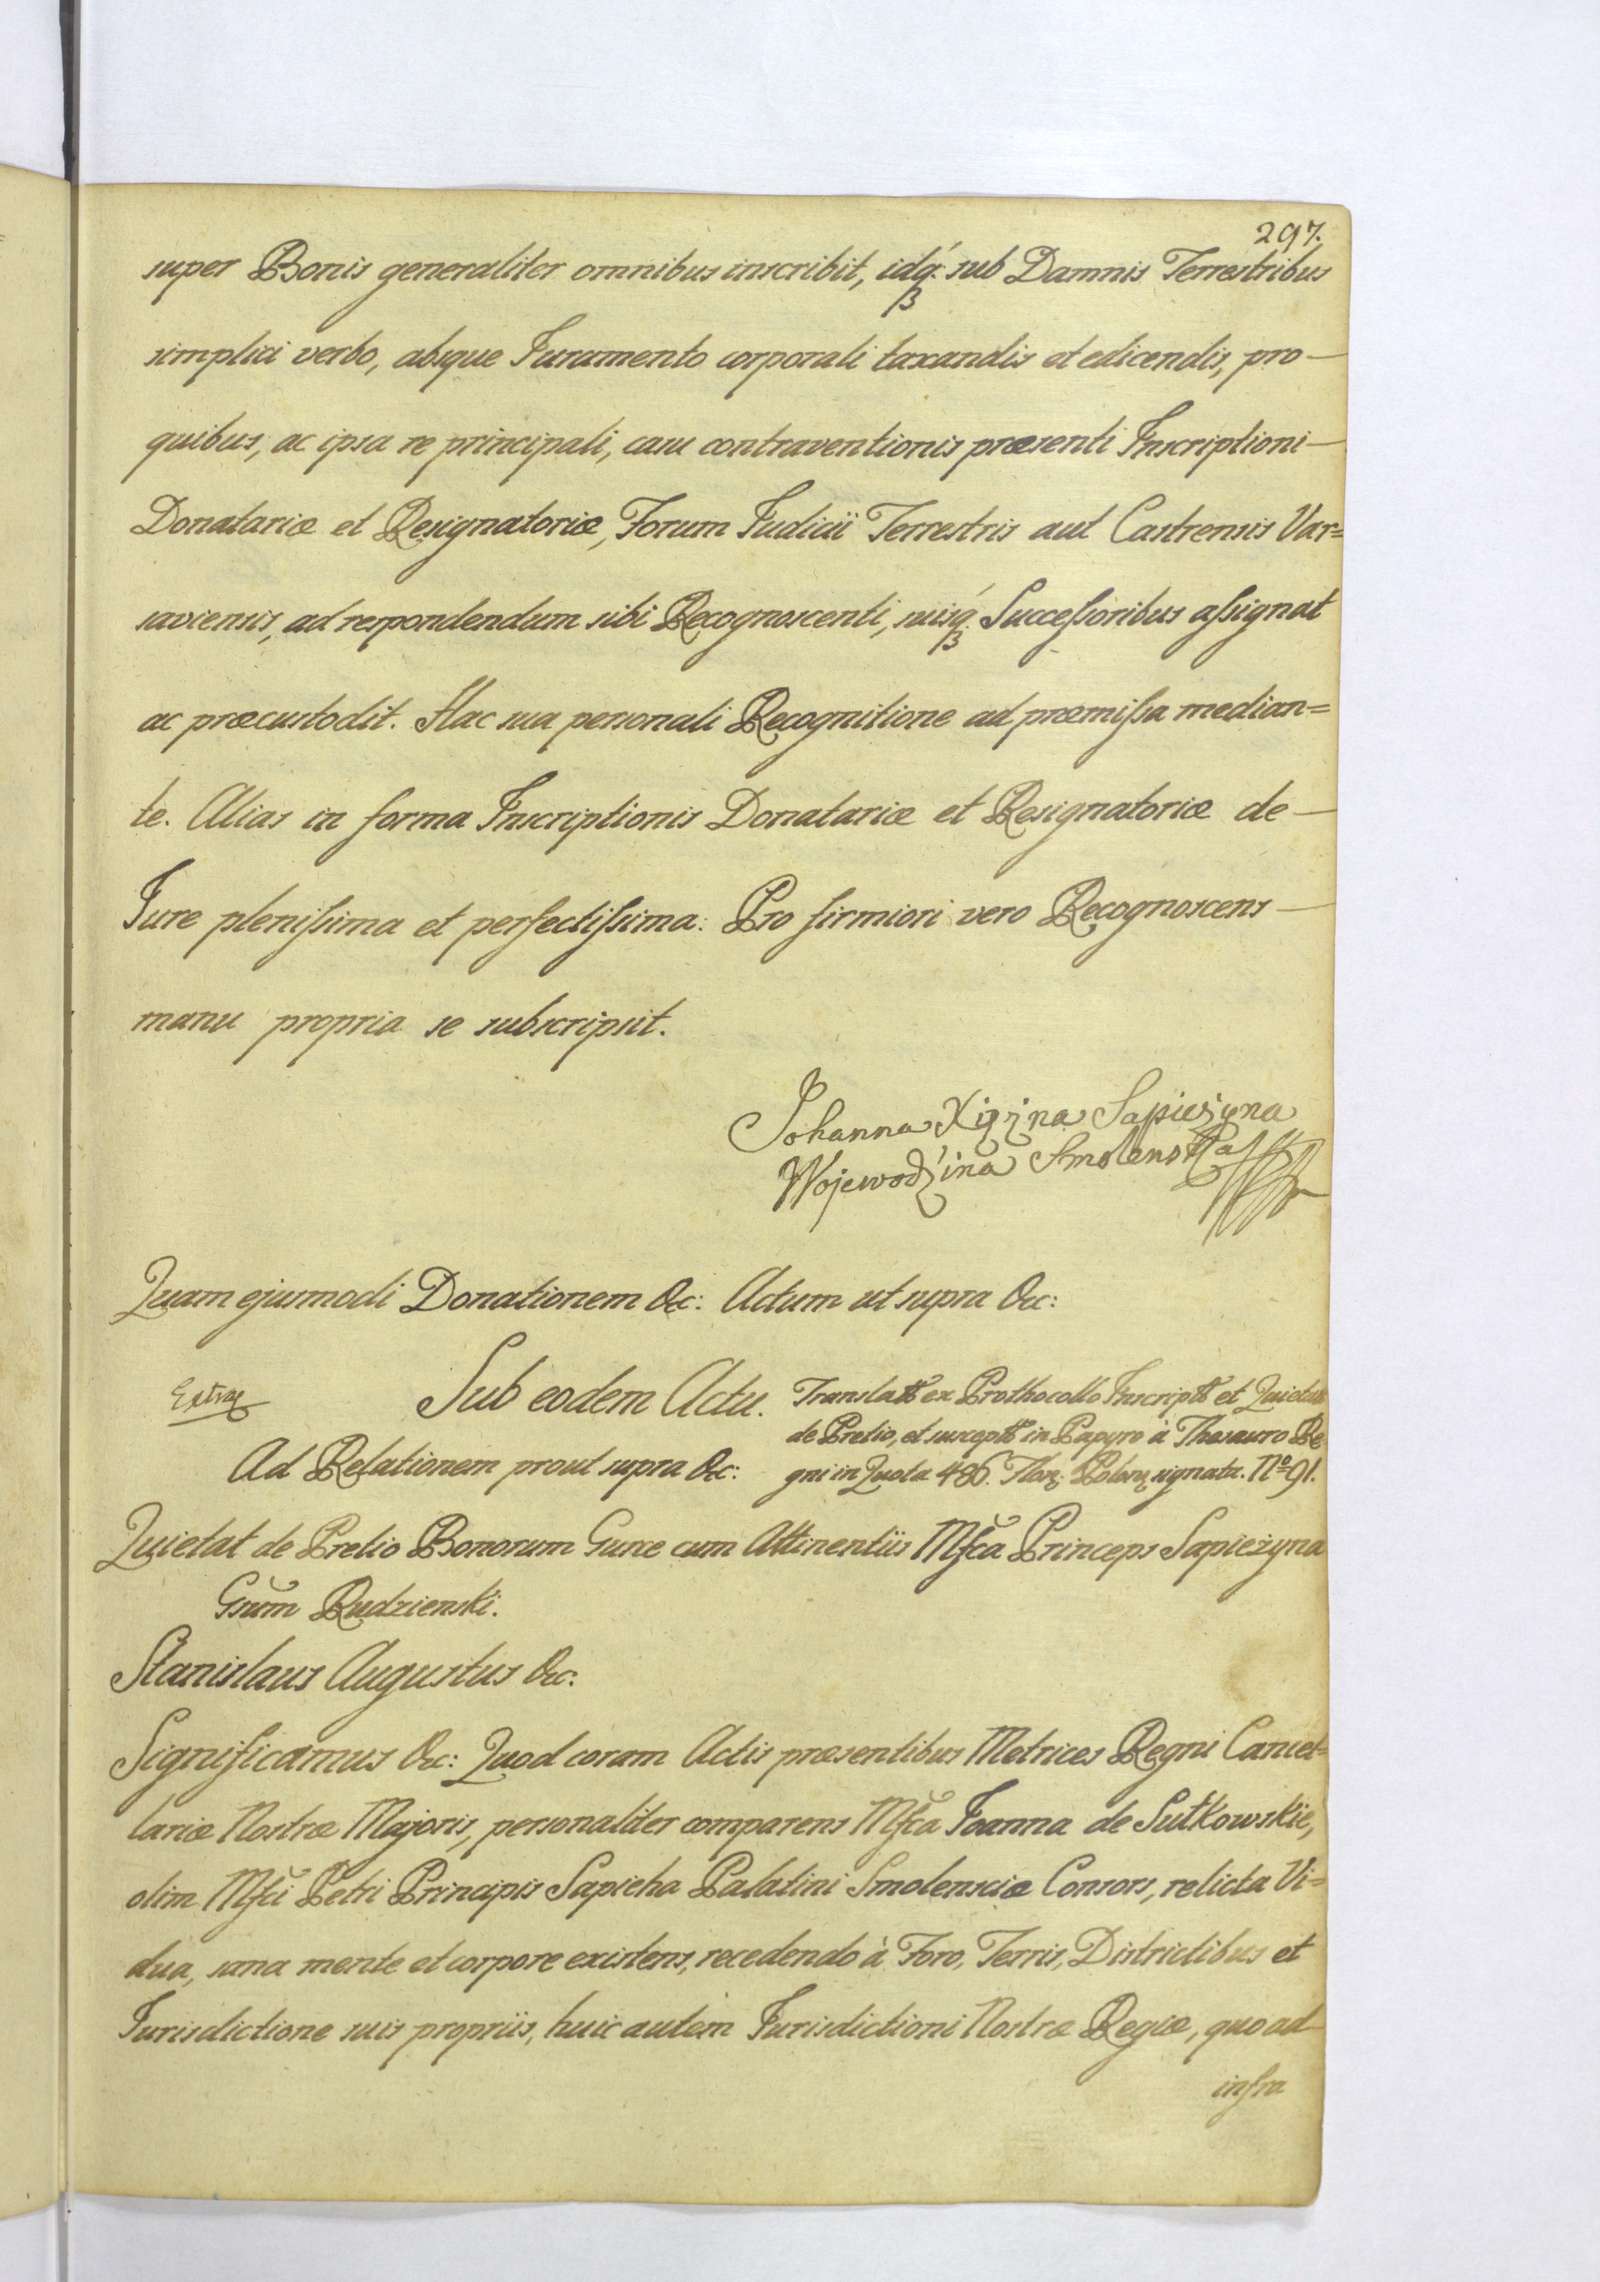 297.
super Bonis generaliter omnibus inscribit, idq́ꝫ sub Damnis Terrestribus
simplici verbo, absque Juramento corporali taxandis et edicendis, pro —
quibus, ac ipsa re principali, casu contraventionis præsenti Inscriptioni —
Donatariæ et Resignatoriæ, Forum Judicii Terrestris aut Castrensis Var=
saviensis, ad respondendum sibi Recognoscenti, suisq́ꝫ Successoribus assignat
ac præcustodit. Hac sua personali Recognitione ad præmissa median=
te. Alias in forma Inscriptionis Donatariæ et Resignatoriæ de —
Jure plenissima et perfectissima: Pro firmiori vero Recognoscens —
manu propria se subscripsit.
Johanna Xiężna Sapieżyna
Wojewodzina Smolenska
Quam ejusmodi Donationem &c: Actum ut supra &c:
Extrae
Sub eodem Actu.
Translatt ex Prothocollo Inscriptt et Quietat
de Pretio, et susceptt in Papyro à Thesauro Re
gni in Quota 486. Flor. Polon. signata. No 91.
Ad Relationem prout supra &c:
Quietat de Pretio Bonorum Gure cum Attinentiis Mfca Princeps Sapieżyna
Gsum Rudzienski.
Stanislaus Augustus &c:
Significamus &c: Quod coram Actis præsentibus Metrices Regni Cancel=
lariæ Nostræ Majoris, personaliter comparens Mfca Joanna de Sułkowskie,
olim Mfci Petri Principis Sapieha Palatini Smolensciæ Consors, relicta Vi=
dua, sana mente et corpore existens, recedendo à Foro, Terris, Districtibus et
Jurisdictione suis propriis, huic autem Jurisdictioni Nostræ Regiæ, quo ad
infra